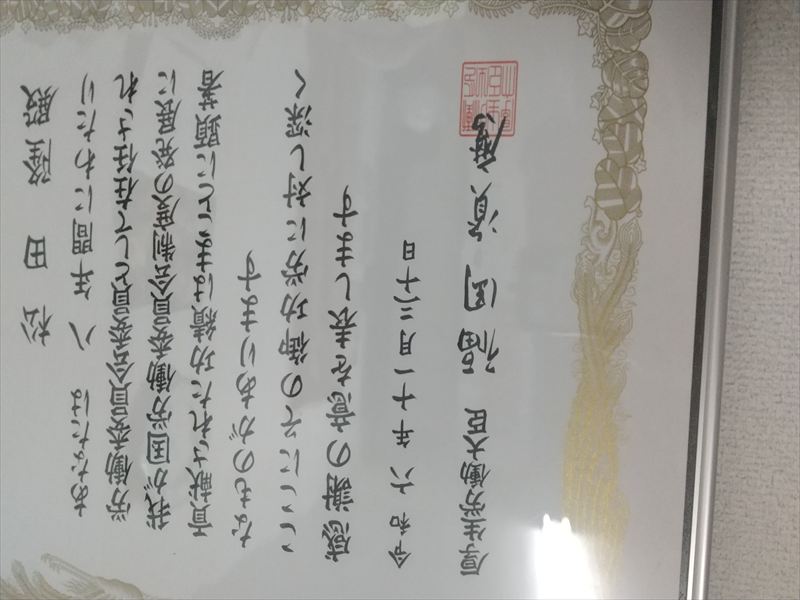 松田隆殿
あなたは八年間にわたり
労働委員会委員として在任され
我が国労働委員会制度の発展に
貢献された功績はまことに顕著
なものがあります
ここにその御功労に対し深く
感謝の意を表します
令和六年十一月二十日
厚生労働大臣 福岡資麿